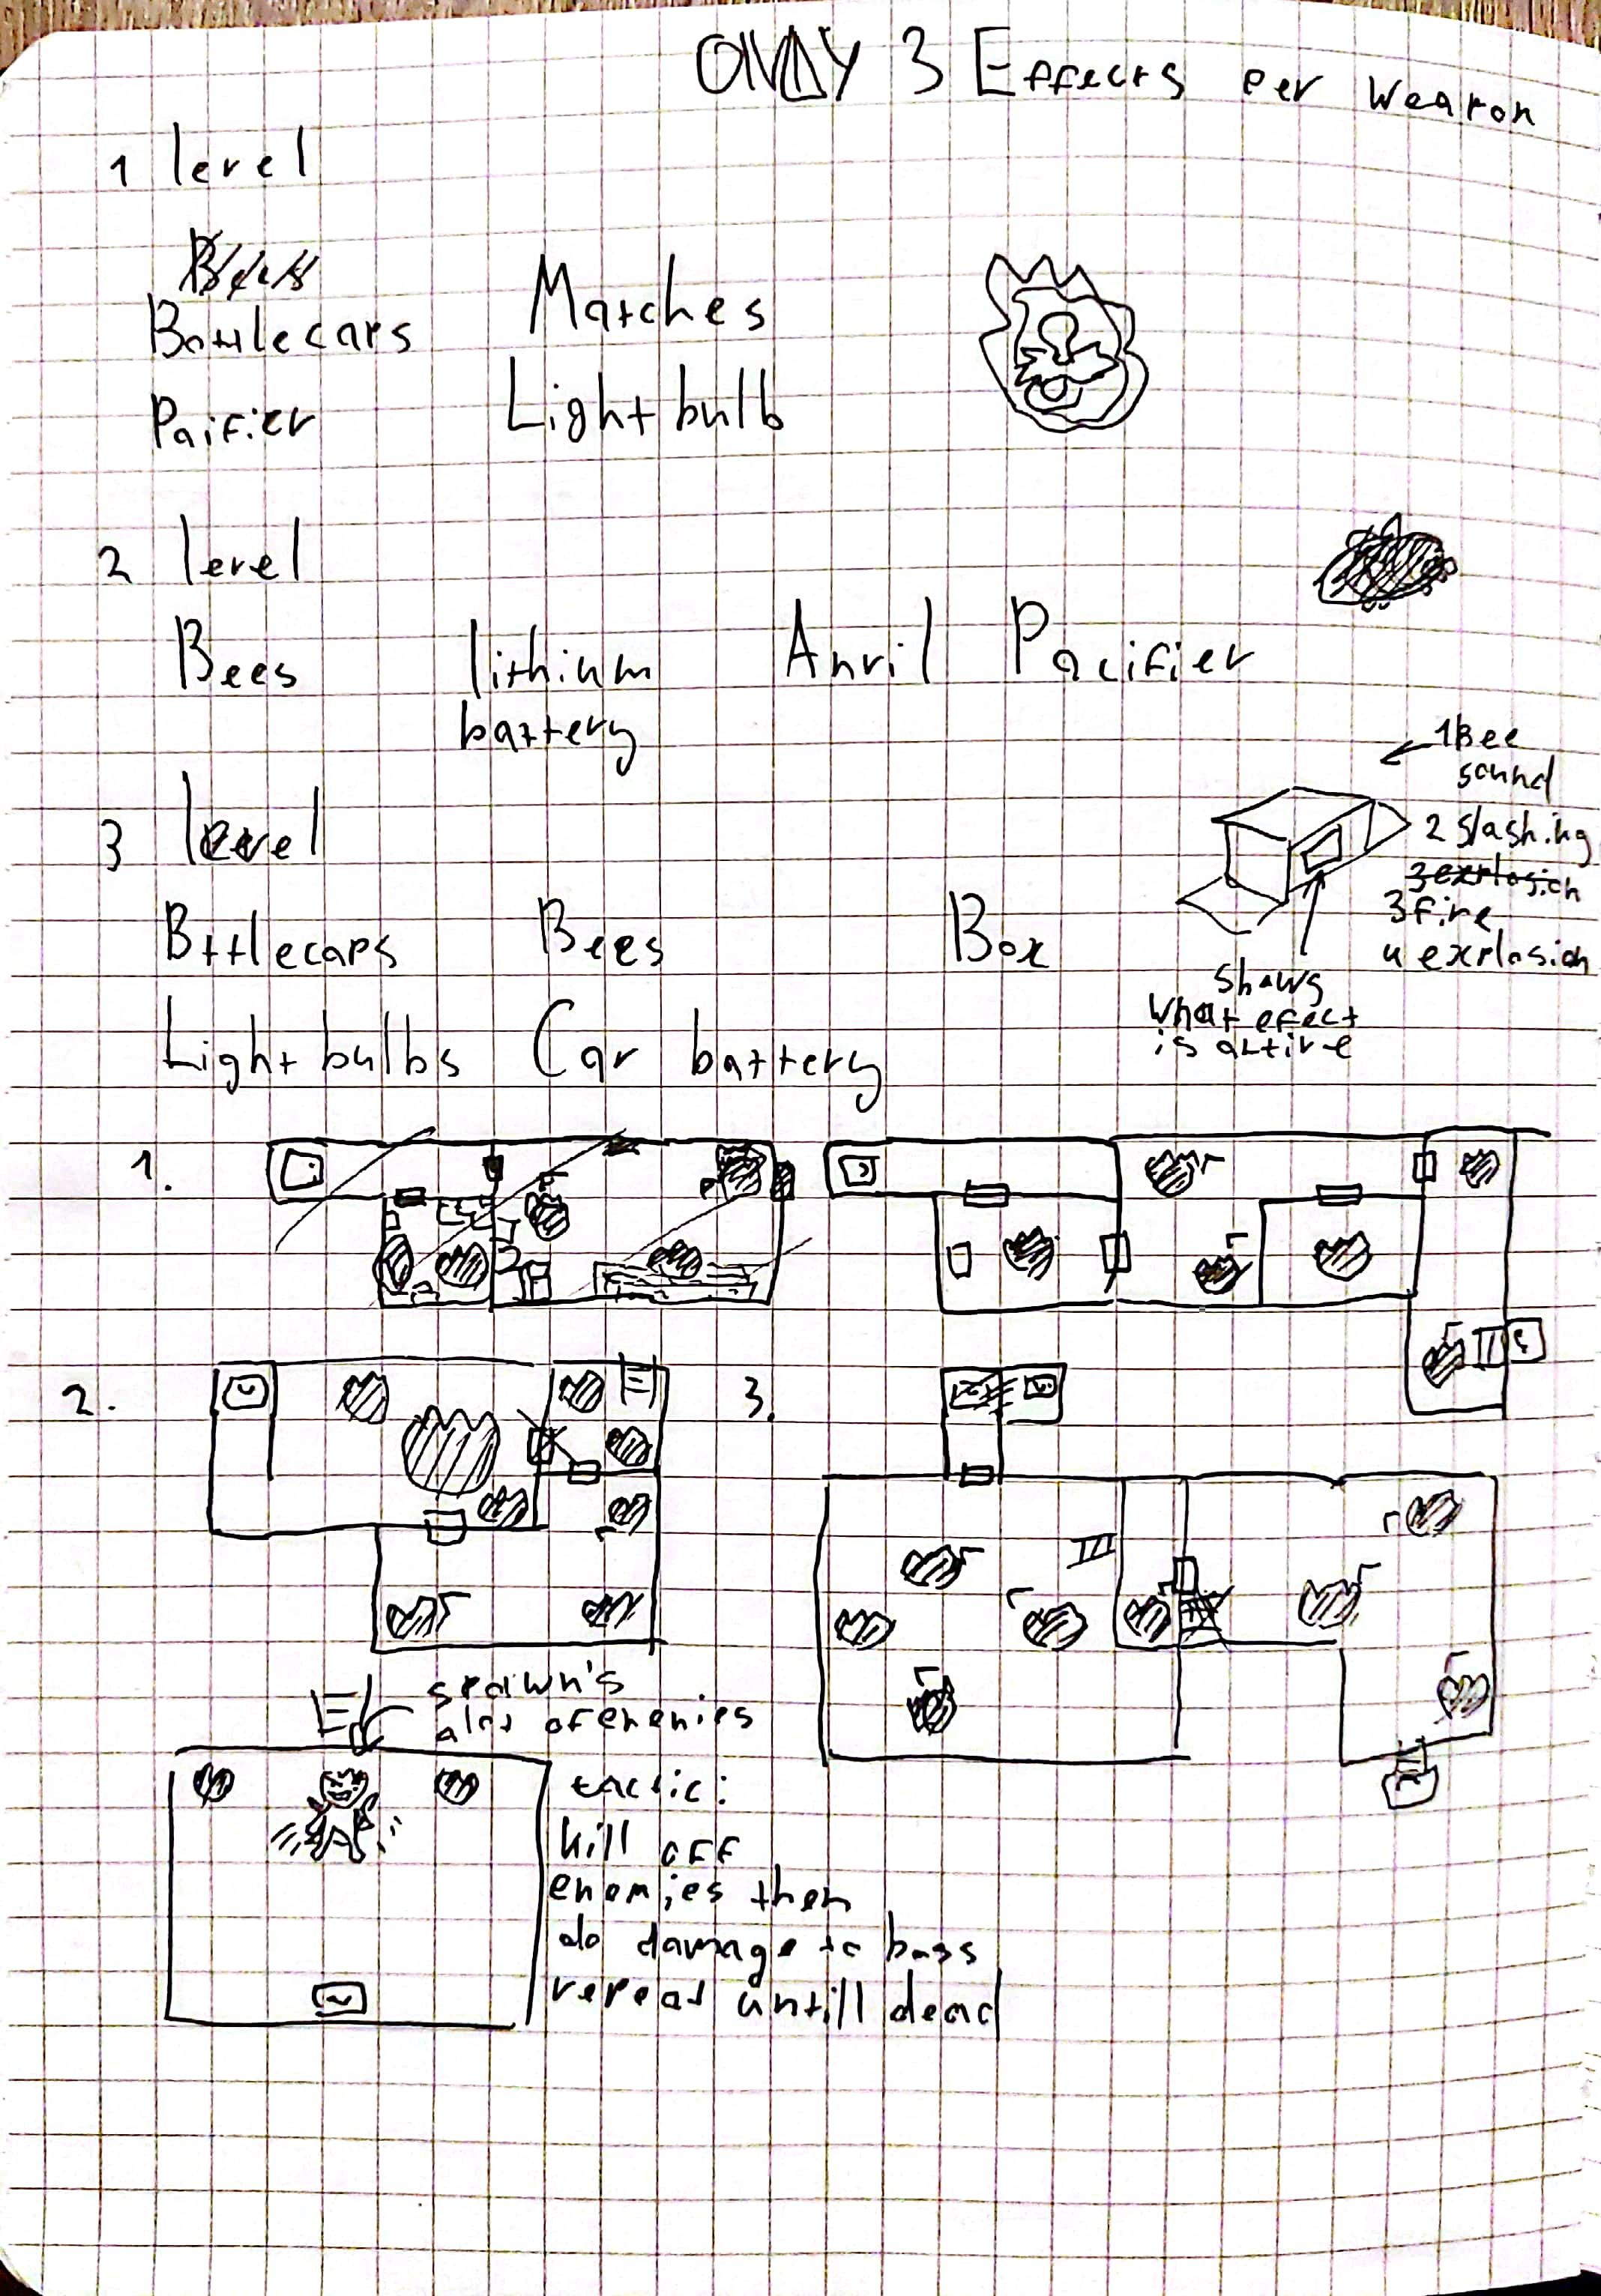 ONLY 3 Effects per Weapon
1 level
Bottlecaps Matches
Paifier Light bulb
2 level
Bees lithium battery Anvil Pacifier
3 level
Bttlecaps Bees Box
Light bulbs Car battery
1 Bee
sound
2 Slashing
3 explosion
3 fire
4 explosion
Shows
What efect
is active
1.
2.
3.
spawn's
alot of enemies
tactic:
kill off
enemies then
do damage to boss
repeat untill dead